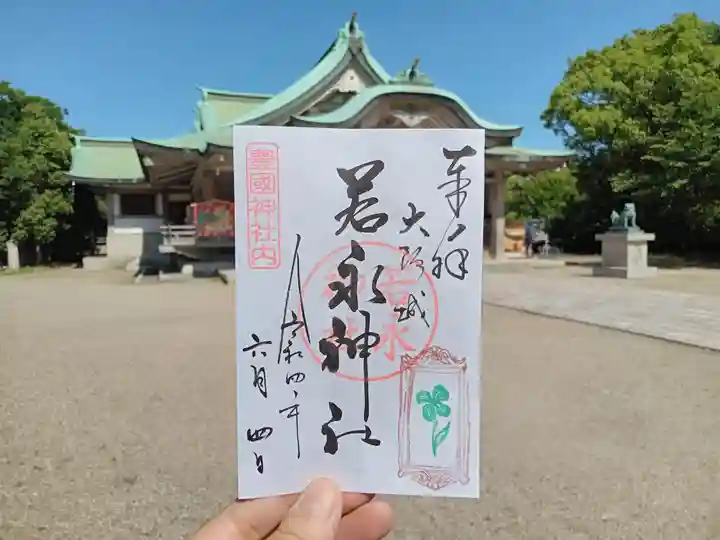 奉拝
大阪城
若永神社
令和四年
六月四日
豊國神社内